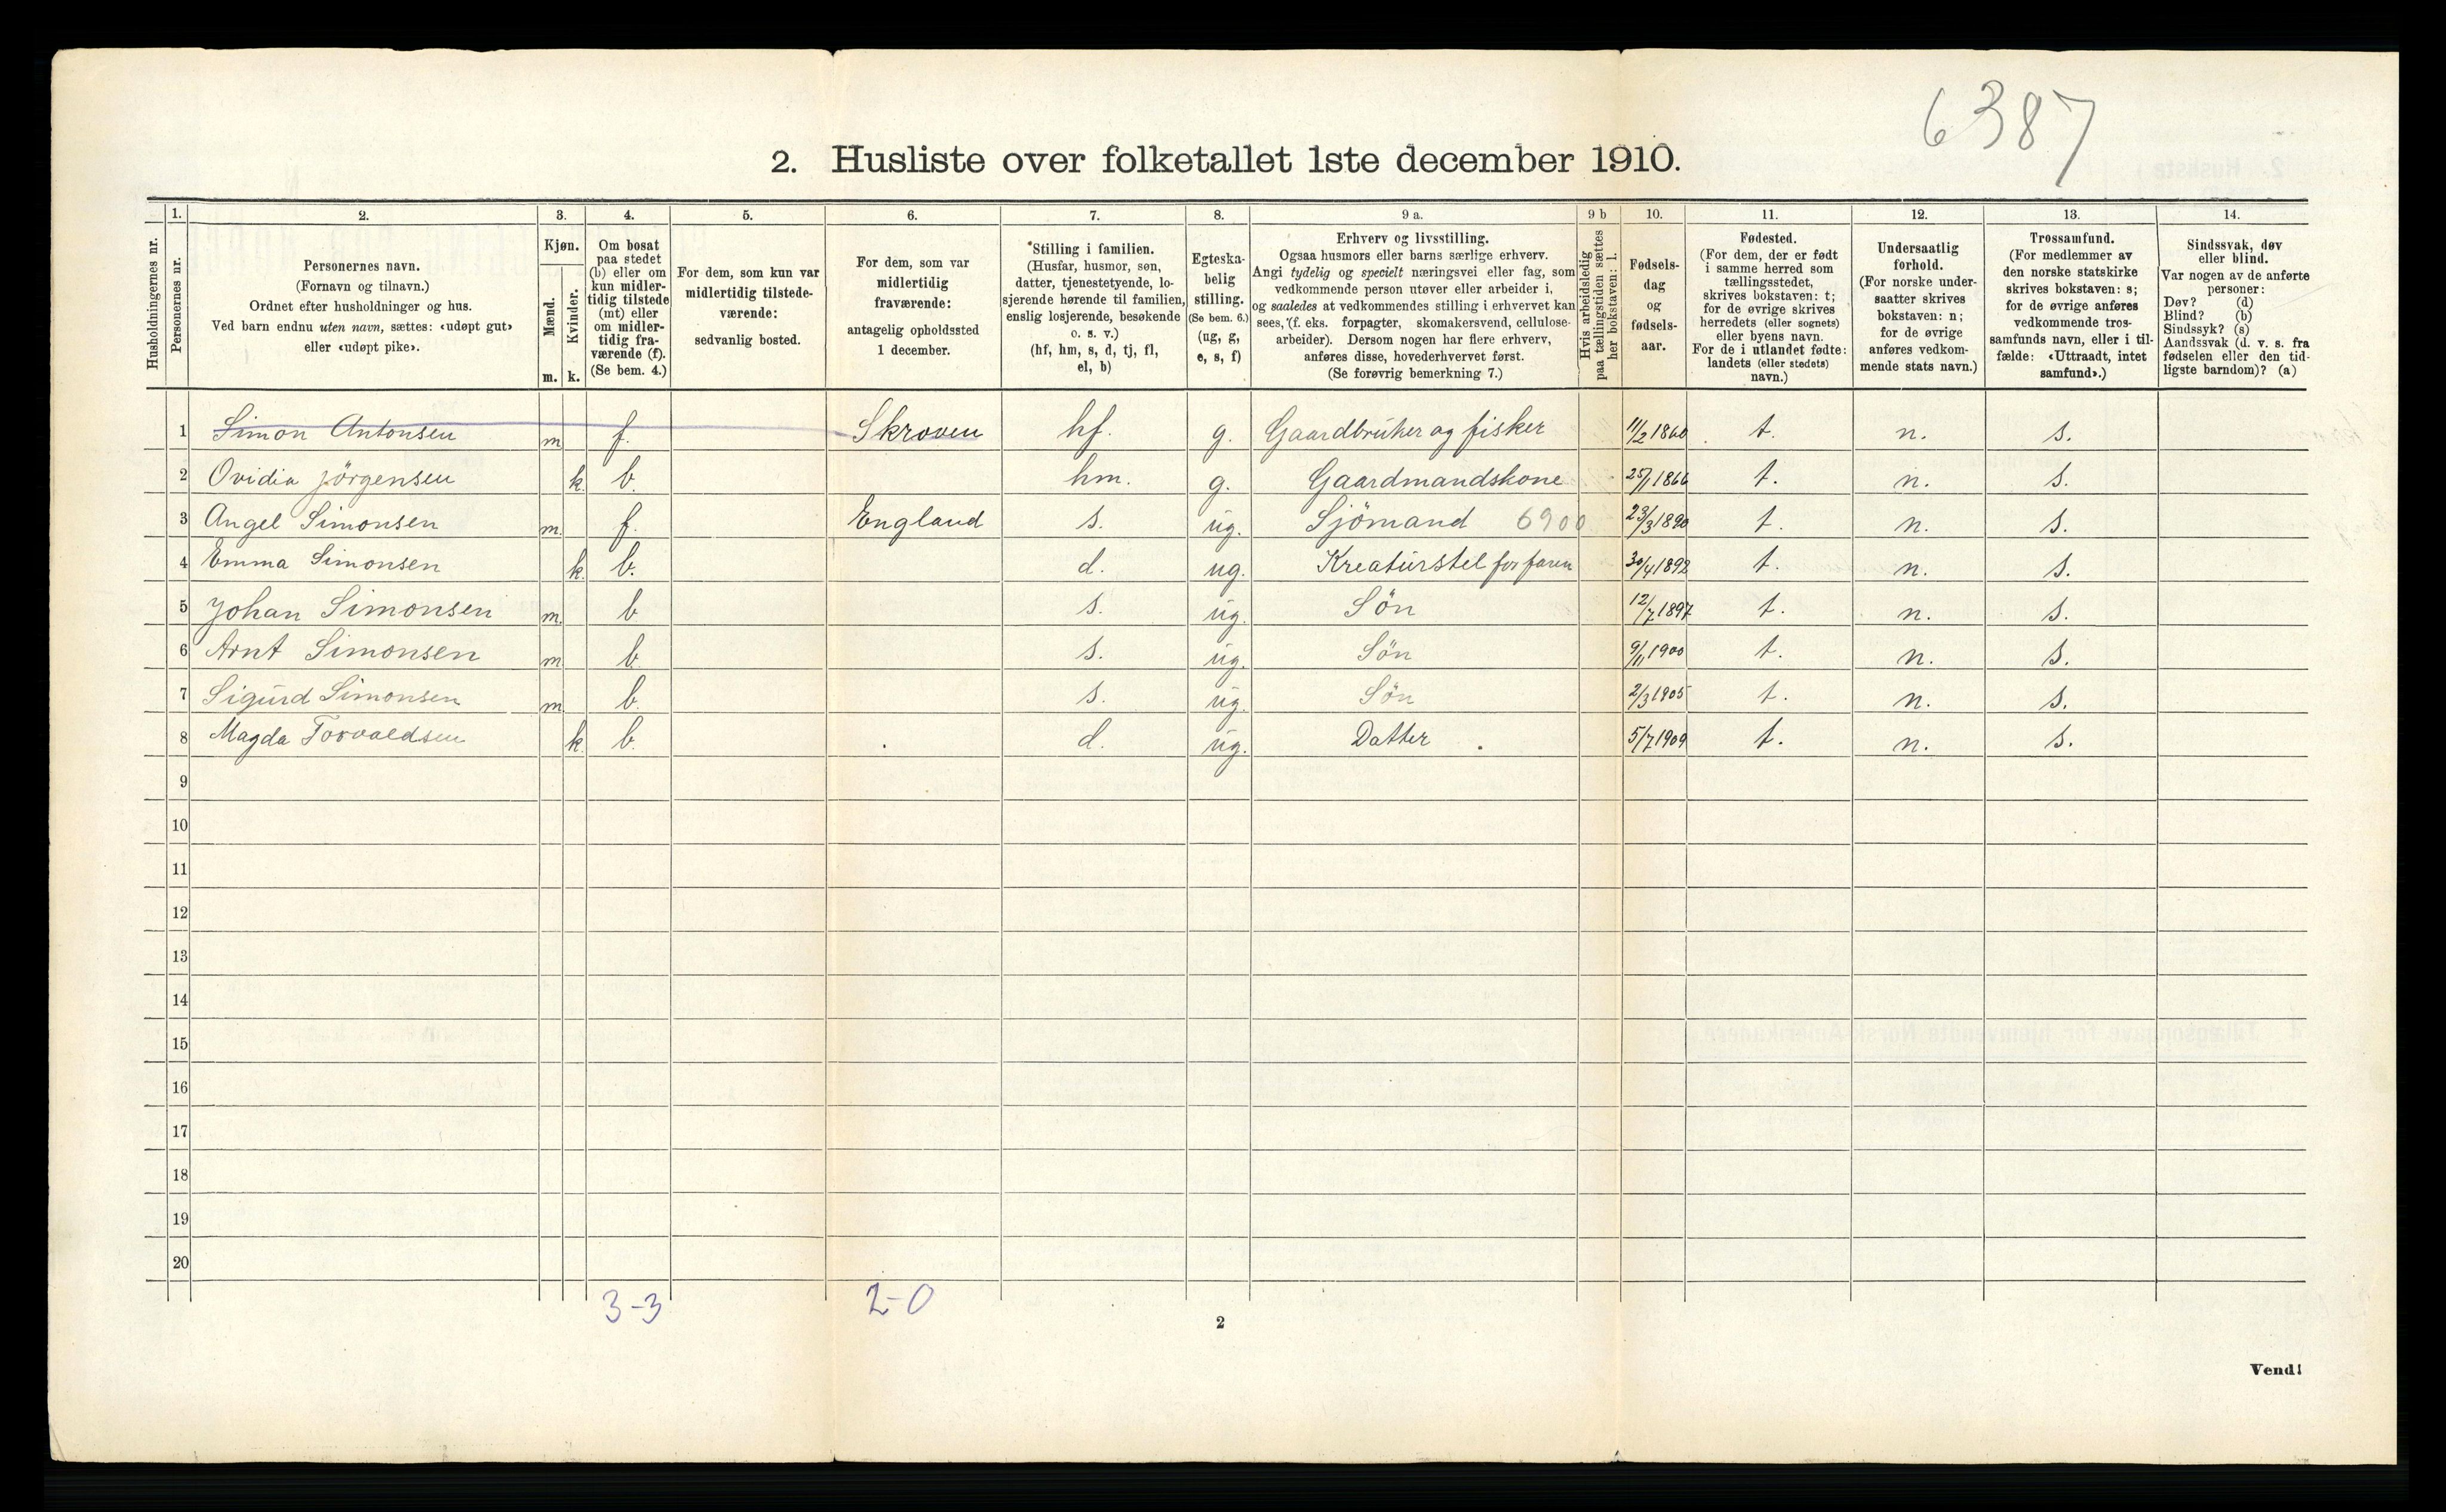 6387
2. Husliste over folketallet 1ste december 1910.
Husholdningernes nr.
1. 2. 3. 4. 5. 6. 7. 8. 9 a. 9 b 10. 11. 12. 13. 14.
Personernes nr.
Personernes navn.
(Fornavn og tilnavn.)
Ordnet efter husholdninger og hus.
Ved barn endnu uten navn, sættes: «udøpt gut»
eller «udøpt pike».
Kjøn.
Mænd.
Kvinder.
m. k.
Om bosat
paa stedet
(b) eller om
kun midler-
tidig tilstede
(mt) eller
om midler-
tidig fra-
værende (f).
(Se bem. 4.)
For dem, som kun var
midlertidig tilstede-
værende:
sedvanlig bosted.
For dem, som var
midlertidig
fraværende:
antagelig opholdssted
1 december.
*Stilling i familien.
(Husfar, husmor, søn,
datter, tjenestetyende, lo-
sjerende hørende til familien,
enslig losjerende, besøkende
o. s. v.)
(hf, hm, s, d, tj, fl,
el, b)
Egteska-
belig
stilling.
(Se bem. 6.)
(ug, g,
e, s, f)
Erhverv og livsstilling.
Ogsaa husmors eller barns særlige erhverv.
Angi tydelig og specielt næringsvei eller fag, som
vedkommende person utøver eller arbeider i,
og saaledes at vedkommendes stilling i erhvervet kan
sees, (f. eks. forpagter, skomakersvend, cellulose-
arbeider). Dersom nogen har flere erhverv,
anføres disse, hovederhvervet først.
(Se forøvrig bemerkning 7.)
Hvis arbeidsledig
paa tællingstiden sættes
her bokstaven: l.
Fødsels-
dag
og
fødsels-
aar.
Fødested.
(For dem, der er født
i samme herred som
tællingsstedet,
skrives bokstaven: t;
for de øvrige skrives
herredets (eller sognets)
eller byens navn.
For de i utlandet fødte:
landets (eller stedets)
navn.)
Undersaatlig
forhold.
(For norske under-
saatter skrives
bokstaven: n;
for de øvrige
anføres vedkom-
mende stats navn.)
Trossamfund.
(For medlemmer av
den norske statskirke
skrives bokstaven: s;
for de øvrige anføres
vedkommende tros-
samfunds navn, eller i til-
fælde: «Uttraadt, intet
samfund».)
Sindssvak, døv
eller blind.
Var nogen av de anførte
personer:
Døv? (d)
Blind? (b)
Sindssyk? (s)
Aandssvak (d. v. s. fra
fødselen eller den tid-
ligste barndom)? (a)
1 Simon Antonsen m f. Skroven hf. g. Gaardbruker og fisker 11/2 1860 t. n. s.
2 Ovidia Jörgensen k. b. hm. g. Gaardmandskone 25/1 1866 t. n. s.
3 Angel Simonsen m. f. England s. ug. Sjömand 6900 23/3 1890 t. n. s.
4 Emma Simonsen k. b. d. ug. Kreaturstel for faren 30/4 1892 t. n. s.
5 Johan Simonsen m. b s. ug. Sön 12/7 1897 t. n. s.
6 Arnt Simonsen m b. s. ug. Sön 9/11 1900 t. n. s.
7 Sigurd Simonsen m. b. s. ug. Sön 2/3 1905 t. n. s.
8 Magda Torvaldsen k. b. d. ug. Datter 5/7 1909 t. n. s.
9
10
11
12
13
14
15
16
17
18
19
20
3-3 2-0
2
Vend!